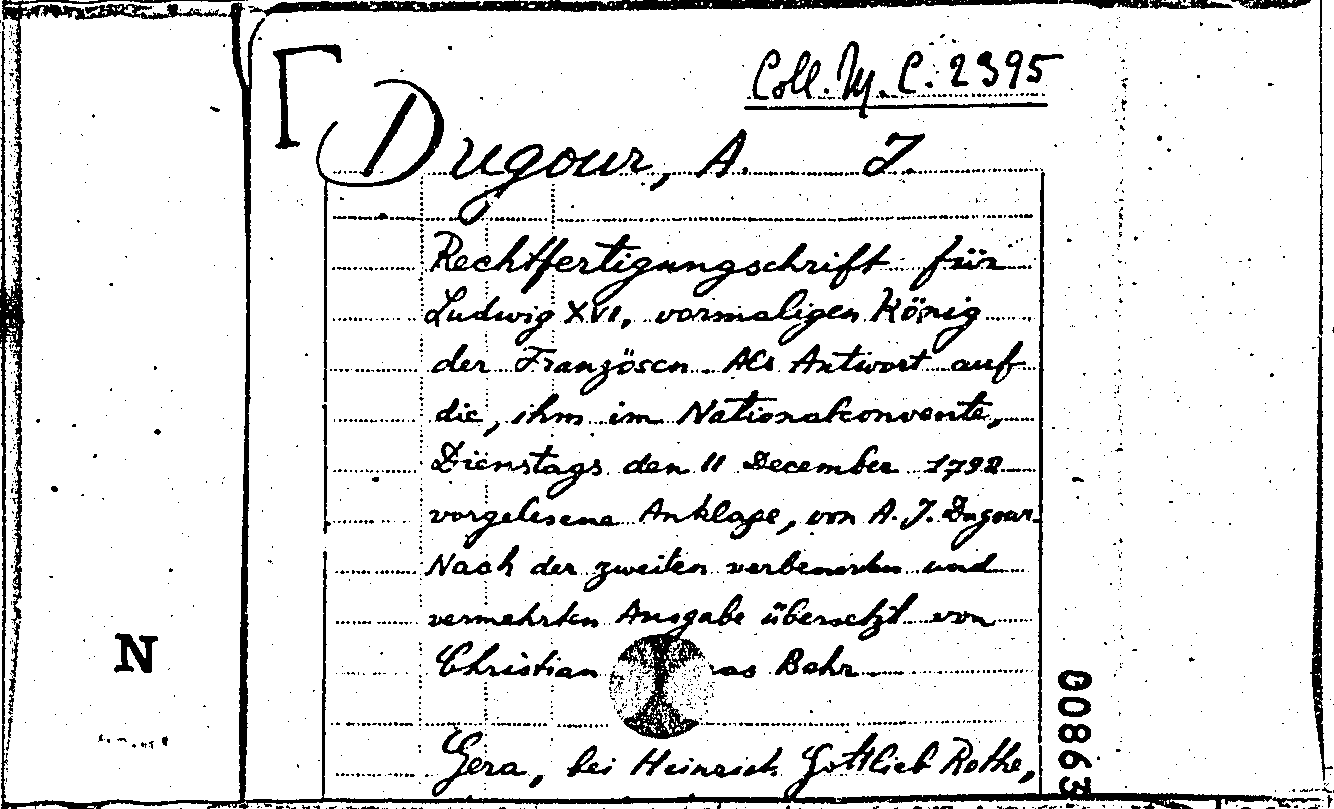 Coll. M. C. 2395
Dugour, A. J.
Rechtfertigungschrift für
Ludwig XVI, vormaligen König
der Französen. Als Antwort auf
die, ihm im Nationalconvente,
Dienstags den 11 December 1792
vorgelesene Anklage, von A. J. Dugour.
Nach der zweiten verbesserten und
vermehrten Ausgabe übersetzt von
Christian as Behr
Gera, bei Heinrich Gottlieb Rothe,
N
00863